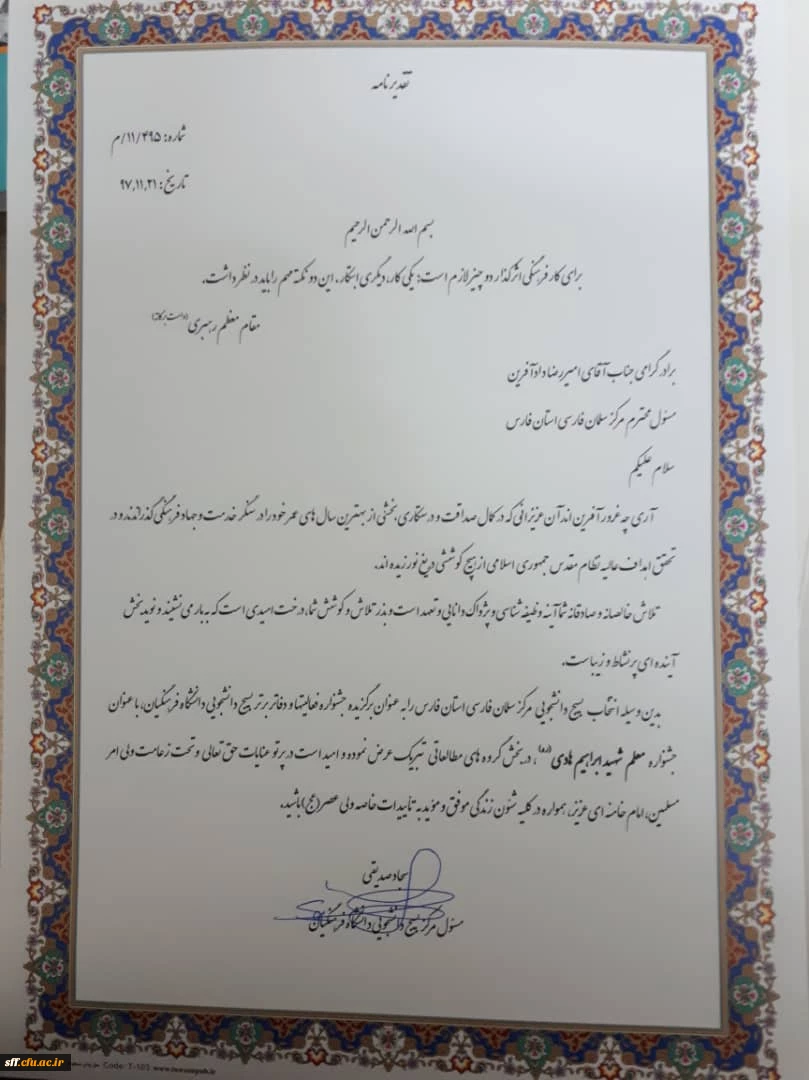 تقدیرنامه
شماره: ۱۱/۴۹۵/م
تاریخ: ۹۷,۱۱,۲۱
بسم الله الرحمن الرحیم
برای کار فرهنگی اثرگذار دو چیز لازم است؛ یکی کار، دیگری ابتکار، این دو نکته مهم را باید در نظر داشت.
مقام معظم رهبری
برادر گرامی جناب آقای امیررضا دادآفرین
مسئول محترم مرکز سلمان فارسی استان فارس
سلام علیکم
آری چه غرور آفرین اند آن عزیزانی که در کمال صداقت و درستکاری، بخشی از بهترین سال های عمر خود را در سنگر خدمت و جهاد فرهنگی گذرانده و در
تحقق اهداف عالیه نظام مقدس جمهوری اسلامی از هیچ کوششی دریغ نورزیده اند.
تلاش خالصانه و صادقانه شما آینه وظیفه شناسی و پژواک دانایی و تعهد است و بذر تلاش و کوشش شما، درخت امیدی است که به بار می نشیند و نوید بخش
آینده ای پر نشاط و زیباست.
بدین وسیله انتخاب بسیج دانشجویی مرکز سلمان فارسی استان فارس را به عنوان برگزیده جشنواره فعالیتها و دفاتر برتر بسیج دانشجویی دانشگاه فرهنگیان، با عنوان
جشنواره معلم شهید ابراهیم هادی(ره)، در بخش گروه های مطالعاتی تبریک عرض نموده و امید است در پرتو عنایات حق تعالی و تحت زعامت ولی امر
مسلمین، امام خامنه ای عزیز، همواره در کلیه شئون زندگی موفق و مؤید به تأییدات خاصه ولی عصر(عج) باشید.
سجاد صدیقی
مسئول مرکز بسیج دانشجویی دانشگاه فرهنگیان
sff.cfu.ac.ir
Code: T-103